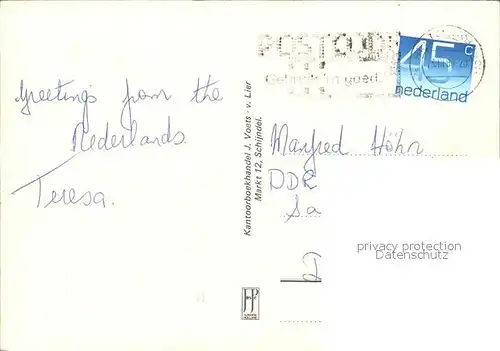 POSTCODE
45 c
nederland
greetings from the
Nederlands.
Teresa.
Kantoorboekhandel J. Voets - v. Lier
Markt 12, Schijndel.
Manfred Höhn
DDR
Sa
privacy protection
Datenschutz